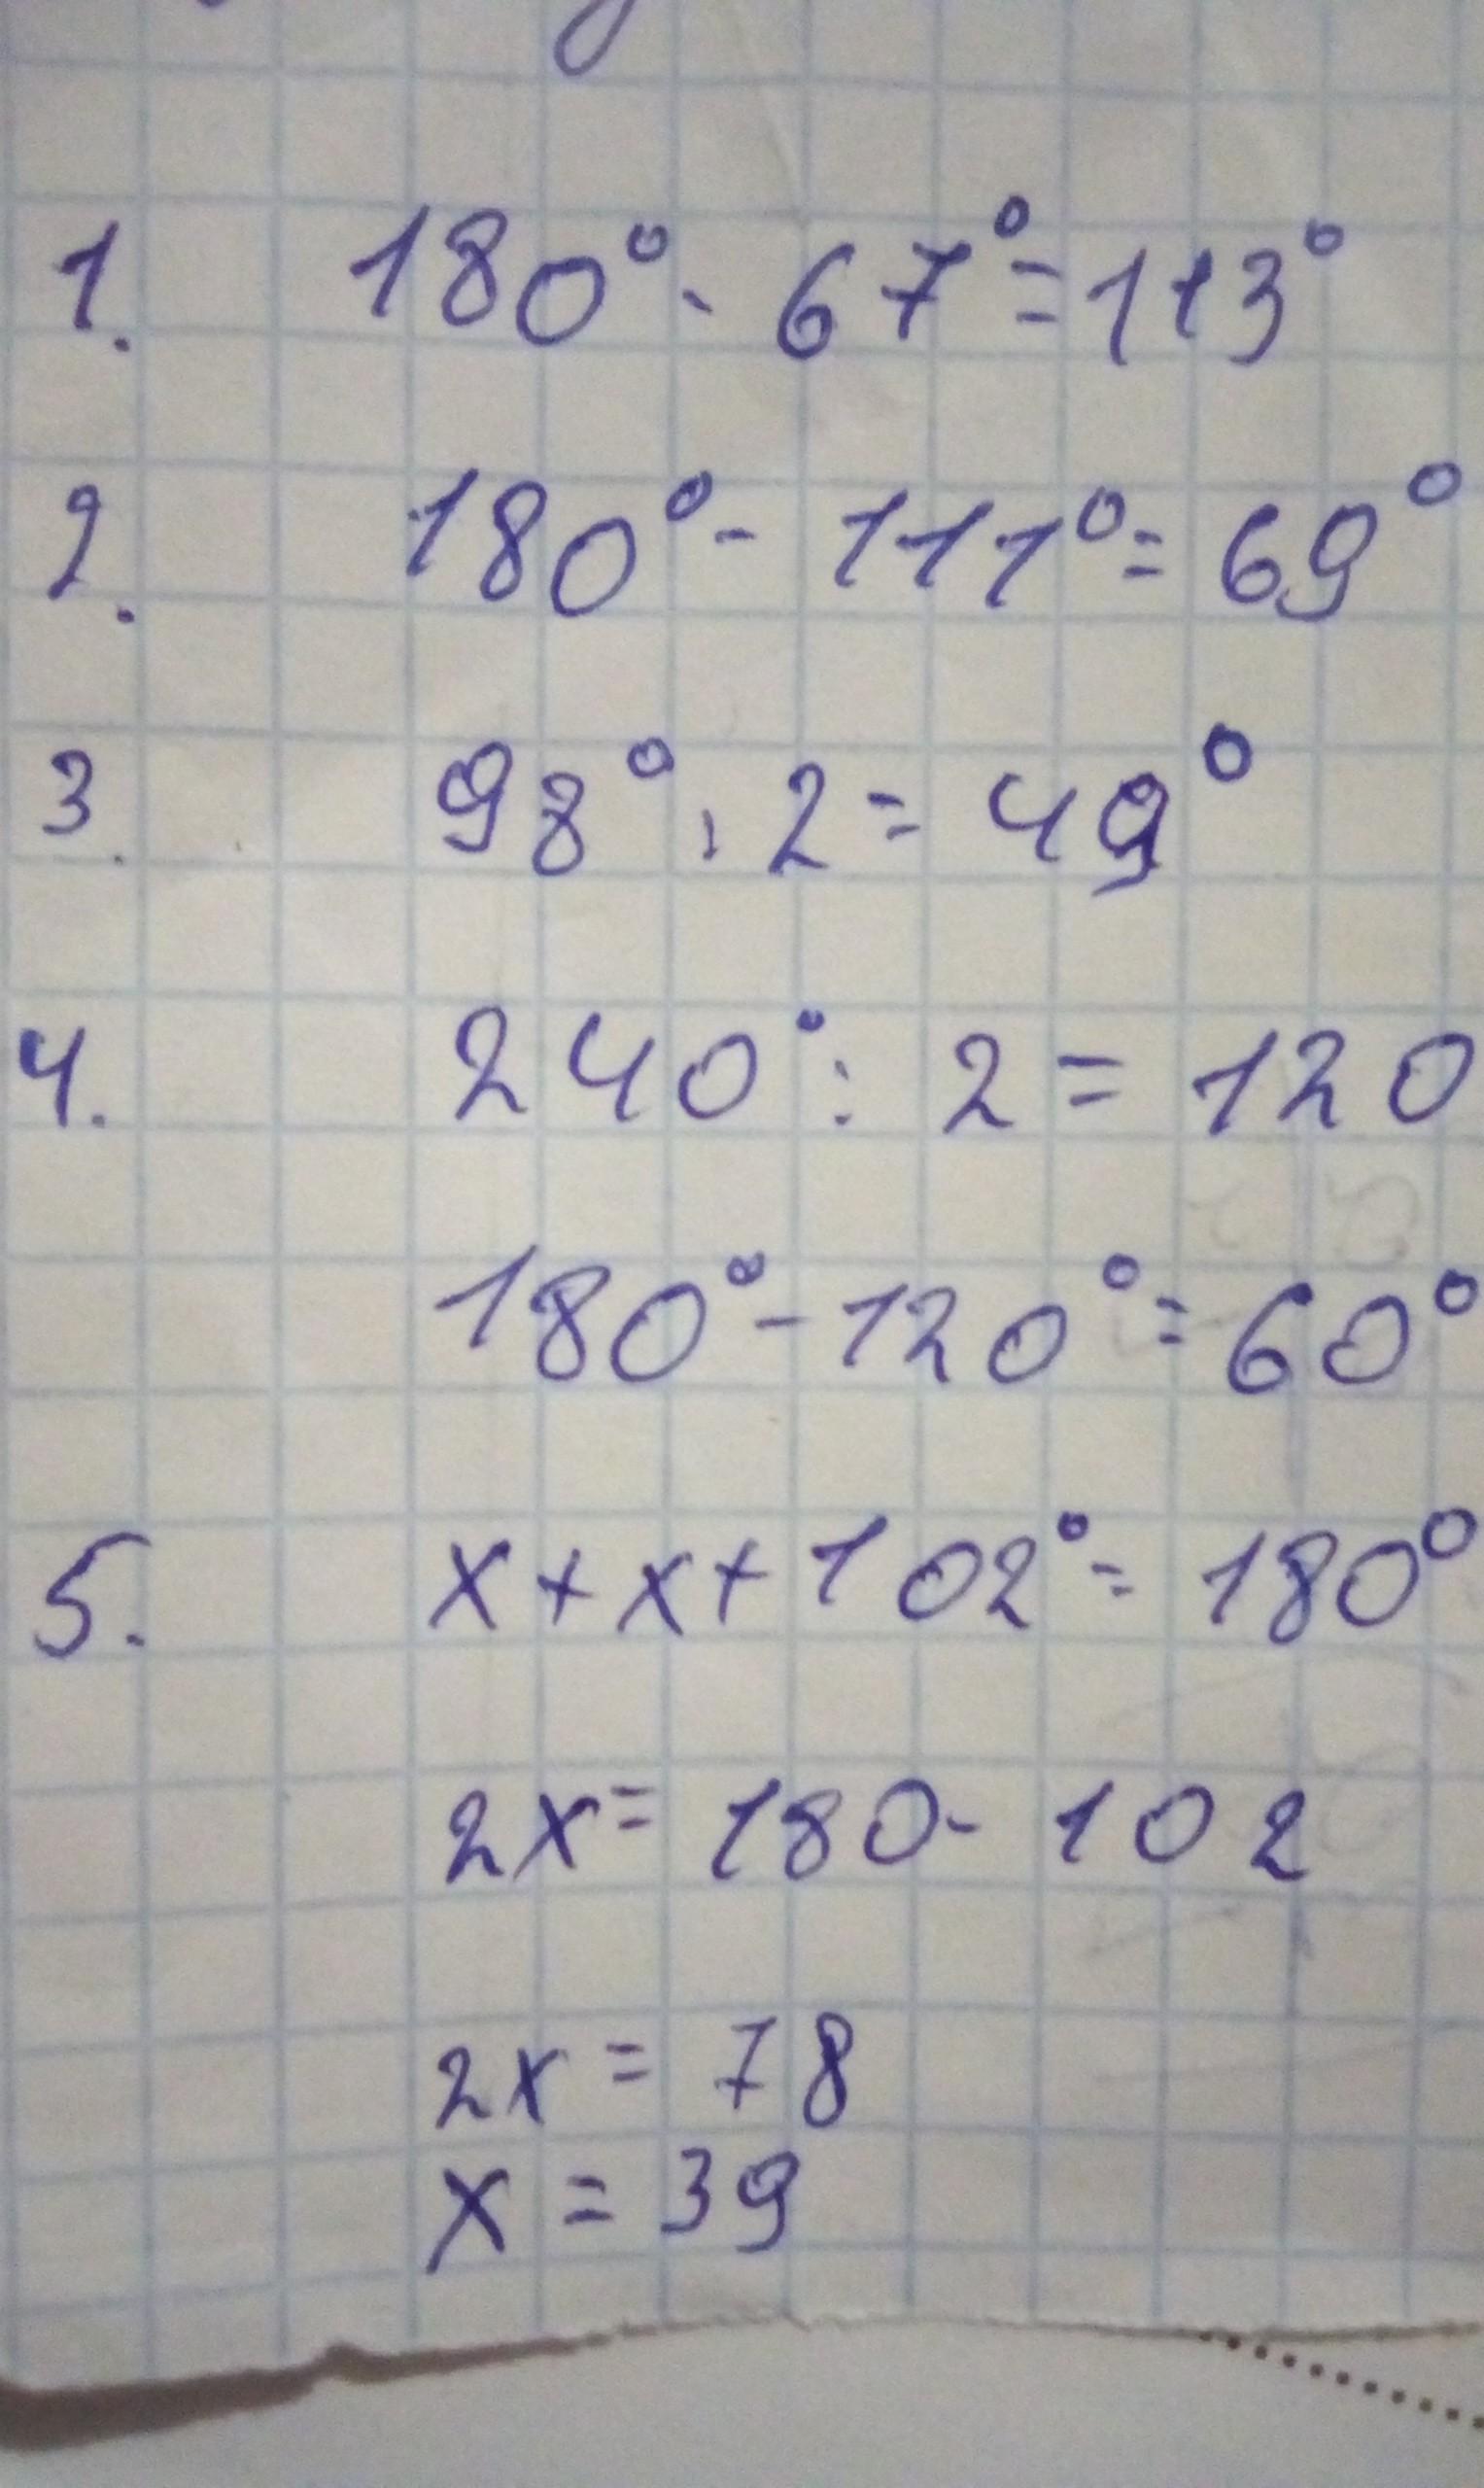 1. 180° - 67° = 113°
2. 180° - 111° = 69°
3. 98° : 2 = 49°
4. 240° : 2 = 120
180° - 120° = 60°
5. x + x + 102° = 180°
2x = 180 - 102
2x = 78
x = 39